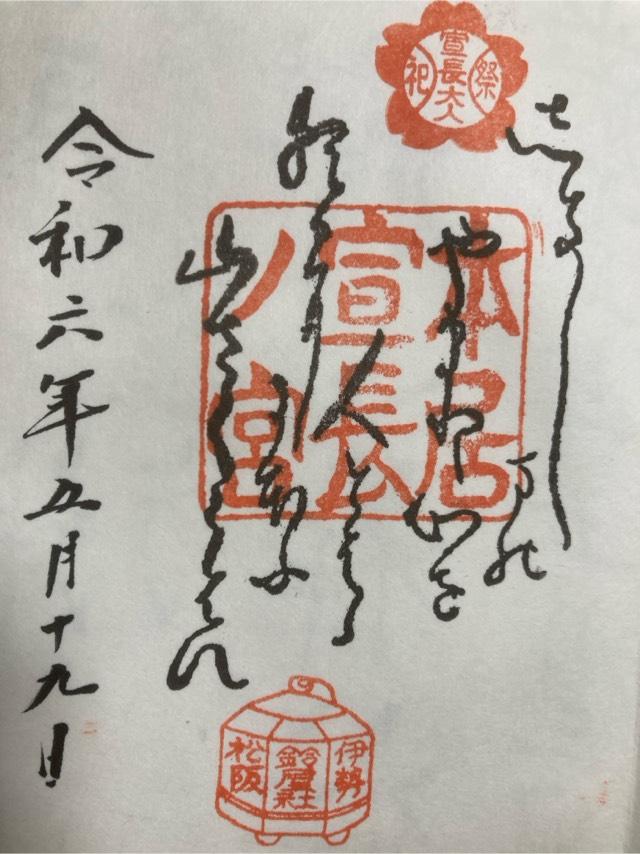 祭
宣長大人
祀
本居
宣長
ノ宮
志きし
まの
やまと
心を
人とはゝ
朝日
にほふ
山さくら
令和六年五月十九日
伊勢
鈴屋社
松阪